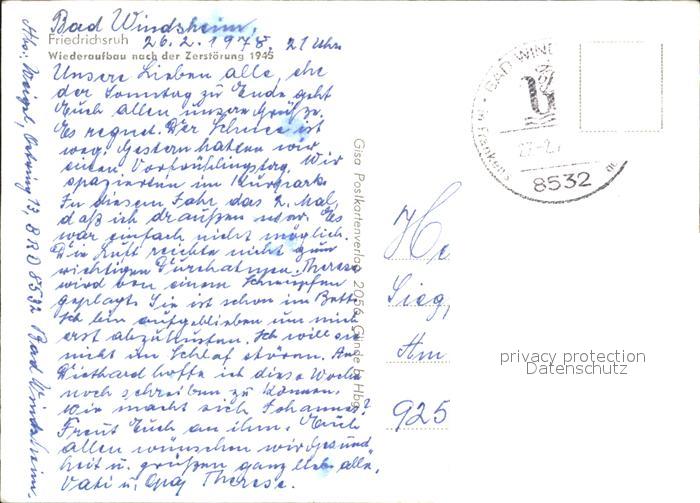 Bad Windsheim,
Friedrichsruh
26.2.1978, 21 Uhr
Wiederaufbau nach der Zerstörung 1945
Unsere Lieben alle, ehe
der Sonntag zu Ende geht
Euch allen unsere Grüße.
Es regnet. Der Schnee ist
weg. Gestern hatten wir
einen Vorfrühlingstag. Wir
spazierten im Kurpark.
In diesem Jahr das 2. Mal,
daß ich draußen war. Es
war einfach nicht möglich.
Die Luft reichte nicht zum
richtigen Durchatmen. Therese
wird von einem Schnupfen
geplagt. Sie ist schon im Bett.
Ich bin aufgeblieben um mich
erst abzuhusten. Ich will sie
nicht im Schlaf stören. An
Diethard hoffe ich diese Woche
noch schreiben zu können.
Wie macht sich Johannes?
Freut Euch an ihm. Euch
allen wünschen wir Gesund-
heit u. grüßen ganz lieb alle,
Vati u. Therese.
Abs: Weigel, 13, BRD 8532 Bad Windsheim.
Gisa Postkartenverlag 2056 Glinde b. Hbg.
BAD WIND
27.-2.
8532
He
Sieg
Am
925
privacy protection
Datenschutz